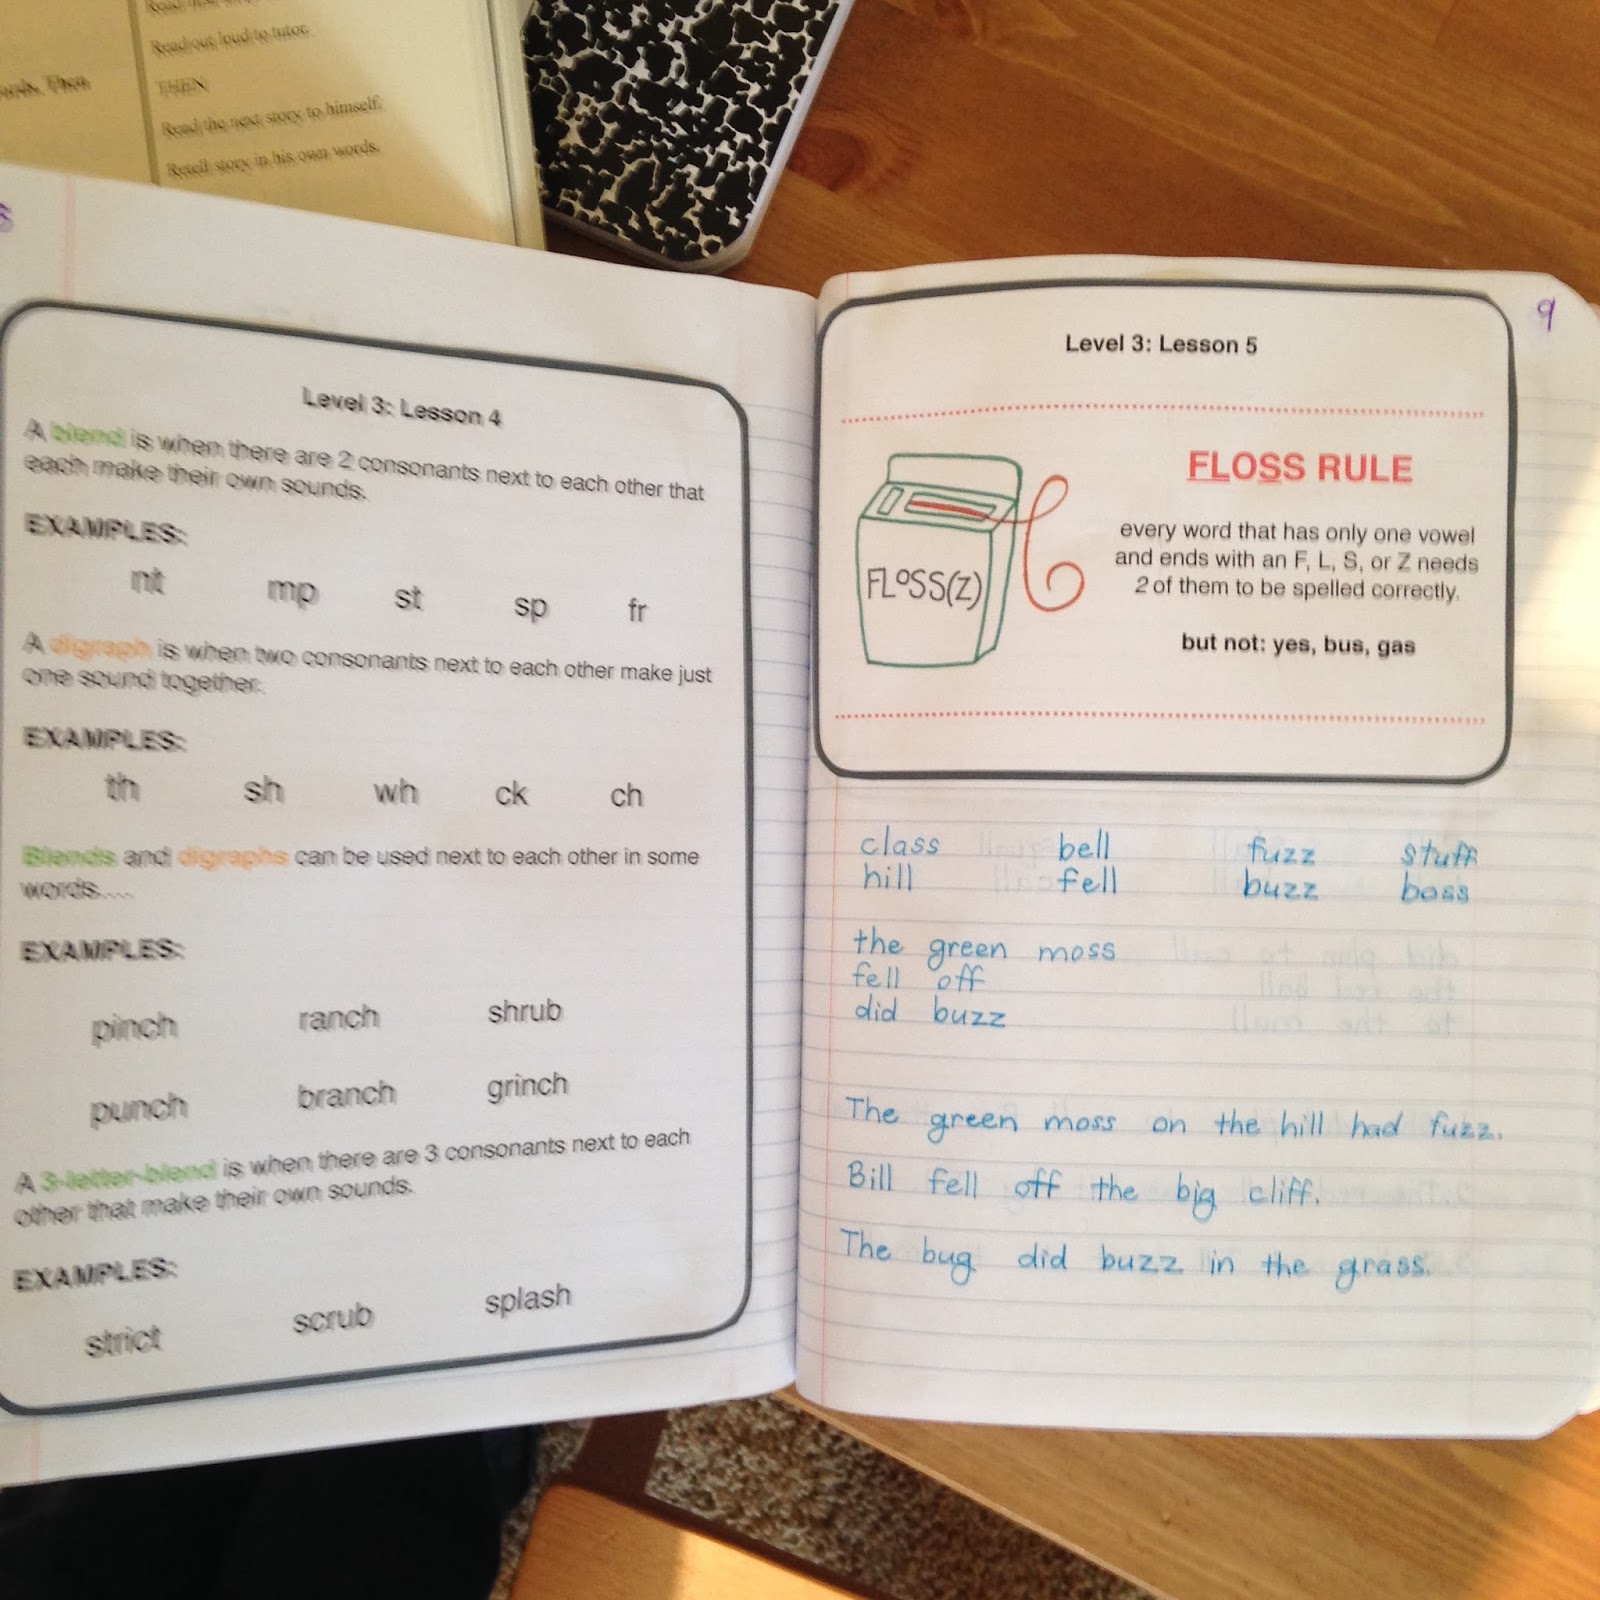 Read out loud to tutor.
THEN
Read the next story to himself.
Retell story in his own words.
Then
8
Level 3: Lesson 4
A blend is when there are 2 consonants next to each other that
each make their own sounds.
EXAMPLES:
nt mp st sp fr
A digraph is when two consonants next to each other make just
one sound together.
EXAMPLES:
th sh wh ck ch
Blends and digraphs can be used next to each other in some
words....
EXAMPLES:
pinch ranch shrub
punch branch grinch
A 3-letter-blend is when there are 3 consonants next to each
other that make their own sounds.
EXAMPLES:
strict scrub splash
9
Level 3: Lesson 5
FLOSS RULE
every word that has only one vowel
and ends with an F, L, S, or Z needs
2 of them to be spelled correctly.
but not: yes, bus, gas
FLOSS(Z)
class bell fuzz stuff
hill fell buzz boss
the green moss
fell off
did buzz
The green moss on the hill had fuzz.
Bill fell off the big cliff.
The bug did buzz in the grass.